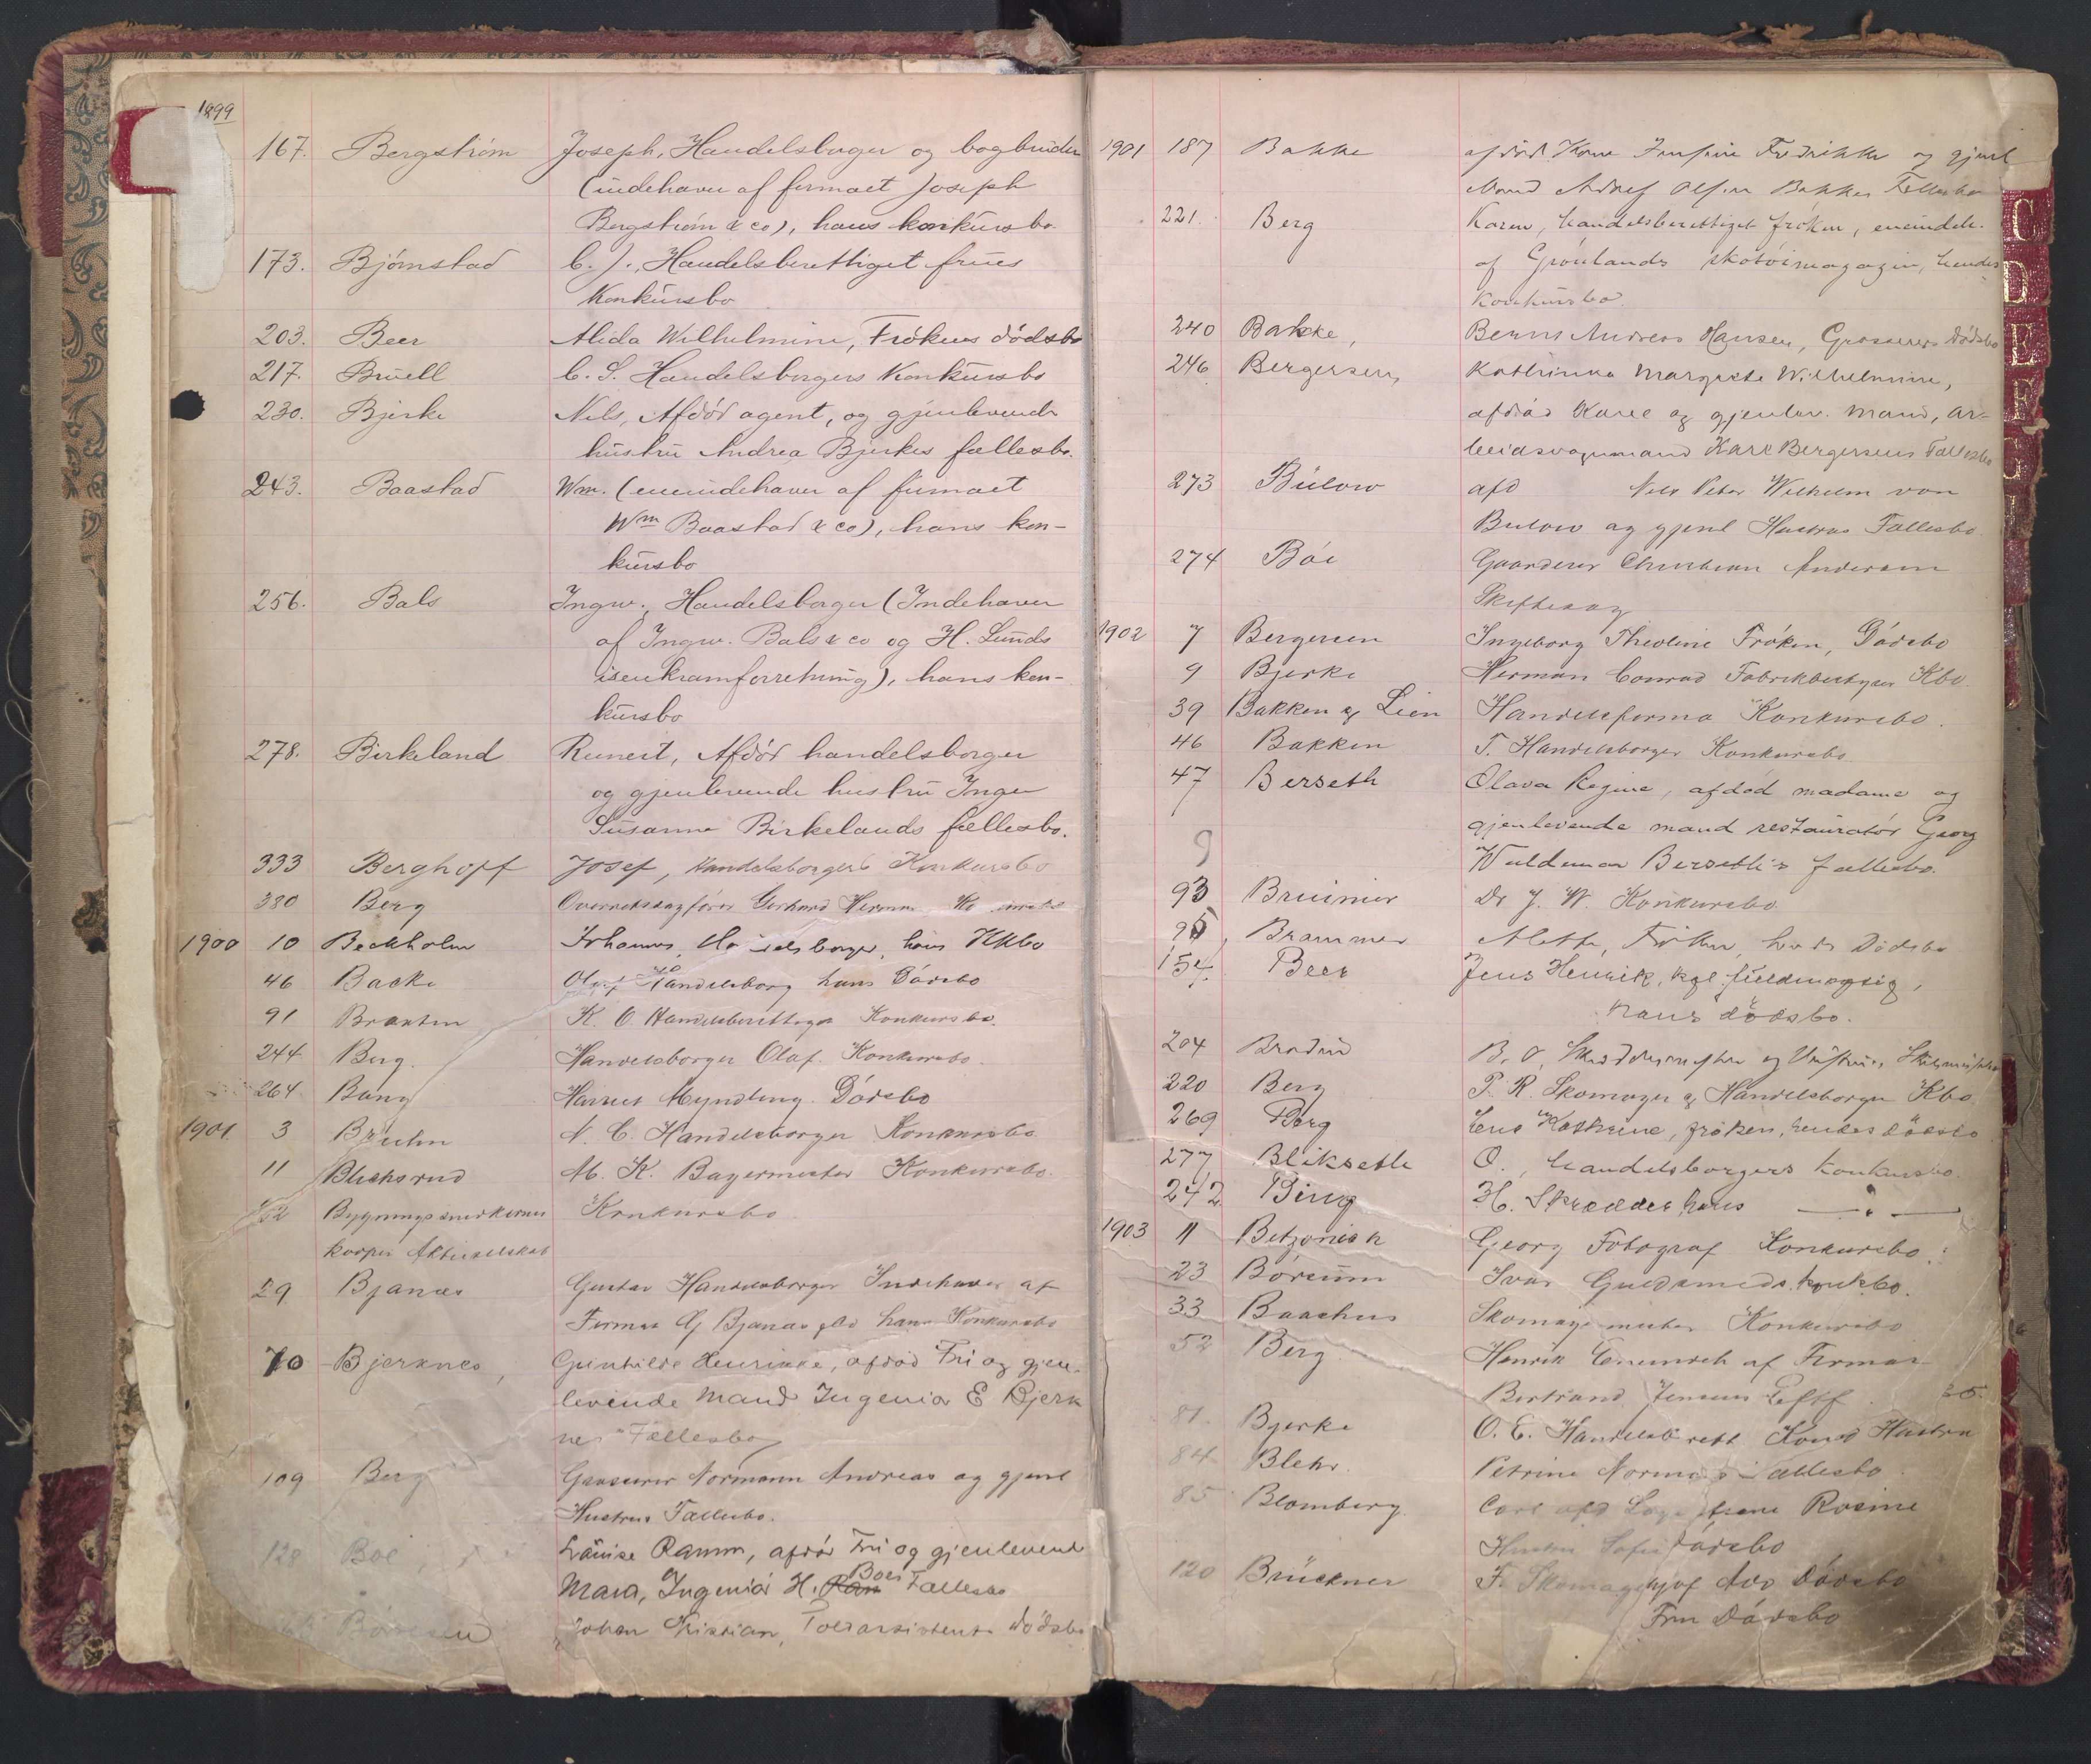 1899
167. Bergström Joseph, Handelsborger og bogbinder
(indehaver af firmaet Joseph
Bergström & co), hans konkursbo.
173. Björnstad C. J., Handelsberettiget frues
Konkursbo
203. Beer Alida Wilhelmine, Frökens dödsbo
217. Bruell C. S. Handelsborgers Konkursbo
230. Bjerke Nels, Afdöd agent, og gjenlevende
hustru Andrea Bjerkes fællesbo.
243. Baastad Wm. (eneindehaver af firmaet
Wm Baastad & co), hans kon-
kursbo
256. Bals Ingw., Handelsborger (Indehaver
af Ingw. Bals & co og H. Lunds
isenkramforretning), hans kon-
kursbo
278. Birkeland Reinert, Afdöd handelsborger
og gjenlevende hustru Inger
Susanne Birkelands fællesbo.
333 Berghoff Josef, Handelsborgers Konkursbo
380 Berg Overretssagförer Gerhard Herman
1900 10 Beckholm Johannes, Handelsborger, hans Kkbo
46 Backe Oluf Handelsborg hans Dödsbo
91 Braaten K. O Handelsberettiget Konkursbo.
244 Berg. Handelsborger Olaf. Konkursbo.
264 Bang Hansus Myndling. Dödsbo
1901 3 Bruhn N. C. Handelsborger Konkursbo
11 Blichsrud M. K. Bagermester Konkursbo.
52 Bygningssnedkernes Konkursbo
koopr. Aktieselskab
29 Bjanæs Gustav Handelsborger Indehaver af
Firmaet G Bjanæs & Co hans Konkursbo
70 Bjerknes, Gunhilde Henrikke, afdöd Fru og gjen-
levende Mand Ingeniör E Bjerk
nes Fællesbo
109 Berg Grosserer Normann Andreas og gjenl
Hustrus Fællesbo.
128 Boe Louise Ramm, afdöd Fru og gjenlevend
Boes
Mand, Ingeniör H. Ram Fællesbo
Börresen Johan Kristian, Toldassistents dödsbo
1901 187 Bakke afdöd Kone Josefine Fredrikke og gjenl
Mand Adolf Olsen Bakkes Fællesbo
221. Berg Karen, handelsberettiget fröken, eneindeh.
af Grönlands skotöimagazin, hendes
konkursbo.
240 Bakke, Bernt Andreas Hansen, Grosserers Dödsbo
246 Bergersen, Kathinka Margrete Wilhelmine,
afdöd Kone og gjenlev. Mand, ar-
beidsvognmand Karl Bergersens Fællesbo
273 Bülow afd Nels Peter Wilhelm von
Bulow og gjenl Hustrus Fællesbo
274 Böe Gaardeier Christian Andersen
Skiftesag
1902 7 Bergersen Ingeborg Theoline Fröken, Dödsbo
9 Bjerke Herman Conrad Fabrikbestyrer Kbo.
39 Bakken og Lien Handelsfirma Konkursbo.
46 Bakken T. Handelsborger Konkursbo
47 Berseth Olava Regine, afdöd madame og
gjenlevende mand restauratör Georg
9 Waldemar Berseth's fællesbo.
93 Bruinier Dr J. W. Konkursbo
95, Brammer Alette, Fröken, hendes Dödsbo
154. Beer Jens Henrik, kgl. fuldmægtig,
hans dödsbo.
204 B. O, Skræddermester og Hustrus,
220 Berg P. R. Skomager og Handelsborger Kbo
269 Berg Lena Kathrine, fröken, hendes dödsbo
277 Blikseth O., handelsborgers konkursbo
242 Bing H. Skrædder, hans — " —
1903 11 Betzonich Georg Fotograf Konkursbo
23 Börsum Ivar Guldsmeds konkbo.
33 Baashus Skomagermester Konkursbo
52 Berg Henrik Eneindeh af Firmaet
Bertrand Jensens Eftf.
81. Bjerke O. E. Handelsb rett Kone Hustru
84 Blehr. Petrine Fællesbo.
85 Blomberg. Carl afd Rosine
Hustru Sofie Dödsbo
120 Brückner F. Skomager Dödsbo
Fru Dödsbo
C
D
E
F
G